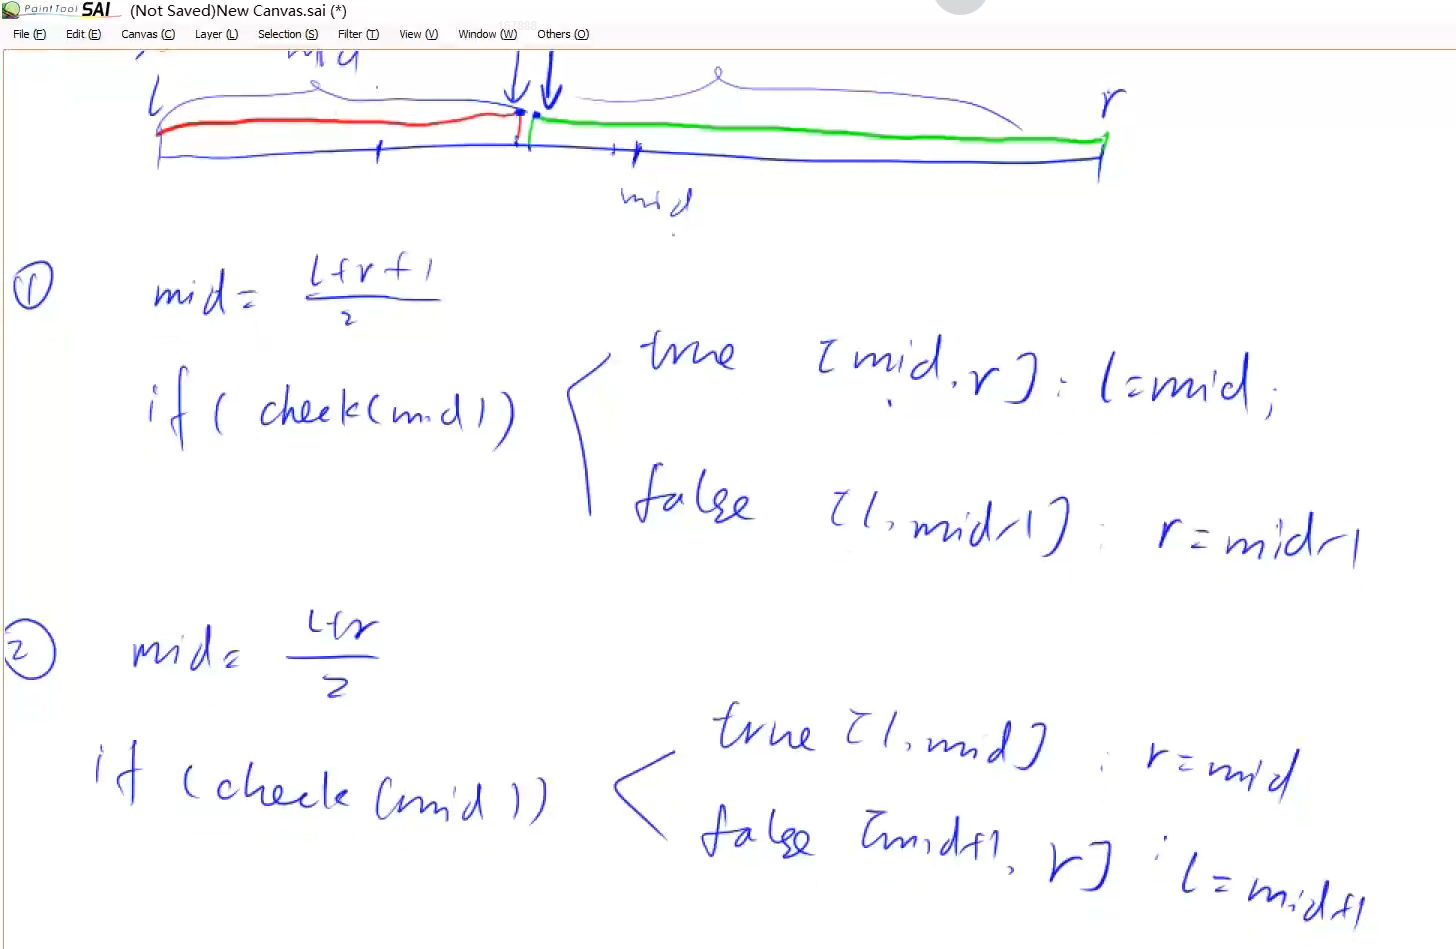 PaintTool SAI (Not Saved)New Canvas.sai (*)
File (F) Edit (E) Canvas (C) Layer (L) Selection (S) Filter (T) View (V) Window (W) Others (O)
mid
l r
mid
① mid = l+r+1
2
if ( check(mid)) true [mid, r] : l=mid;
false [l, mid-1] : r=mid-1
② mid = l+r
2
if (check (mid)) true [l, mid] : r=mid
false [mid+1, r] : l=mid+1